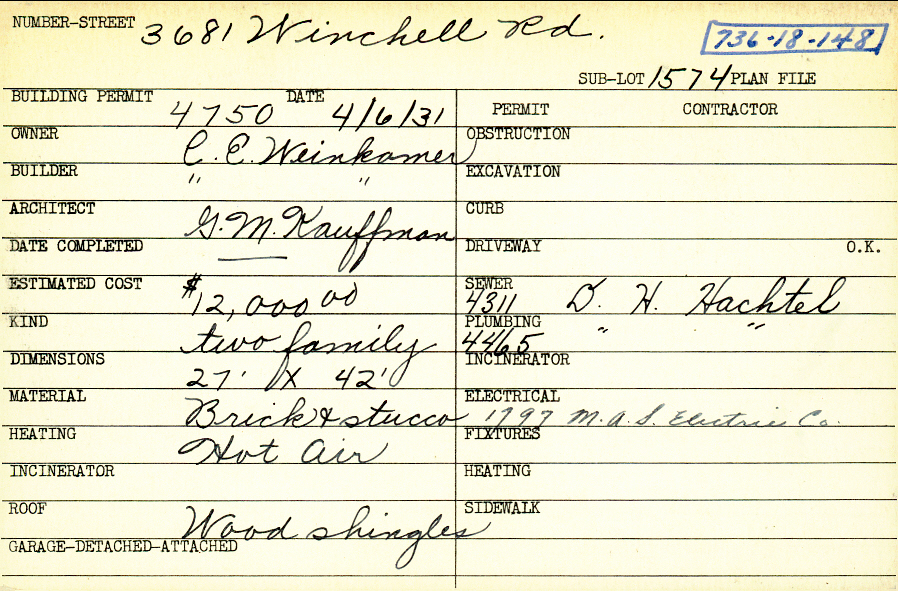 NUMBER-STREET 3681 Winchell Rd.
736-18-148
SUB-LOT 1574 PLAN FILE
BUILDING PERMIT 4750 DATE 4/6/31
PERMIT CONTRACTOR
OWNER C. E. Weinkamer
OBSTRUCTION
BUILDER " "
EXCAVATION
ARCHITECT G. M. Kauffman
CURB
DATE COMPLETED —
DRIVEWAY O.K.
ESTIMATED COST $12,000 00
SEWER 4311 D. H. Hachtel
KIND two family
PLUMBING 4465 " "
DIMENSIONS 27' X 42'
INCINERATOR
MATERIAL Brick & stucco
ELECTRICAL 1797 M.A.S. Electric Co.
HEATING Hot Air
FIXTURES
INCINERATOR
HEATING
ROOF Wood shingles
SIDEWALK
GARAGE-DETACHED-ATTACHED